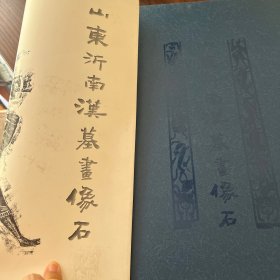 山東沂南漢墓畫像石
墓畫像石